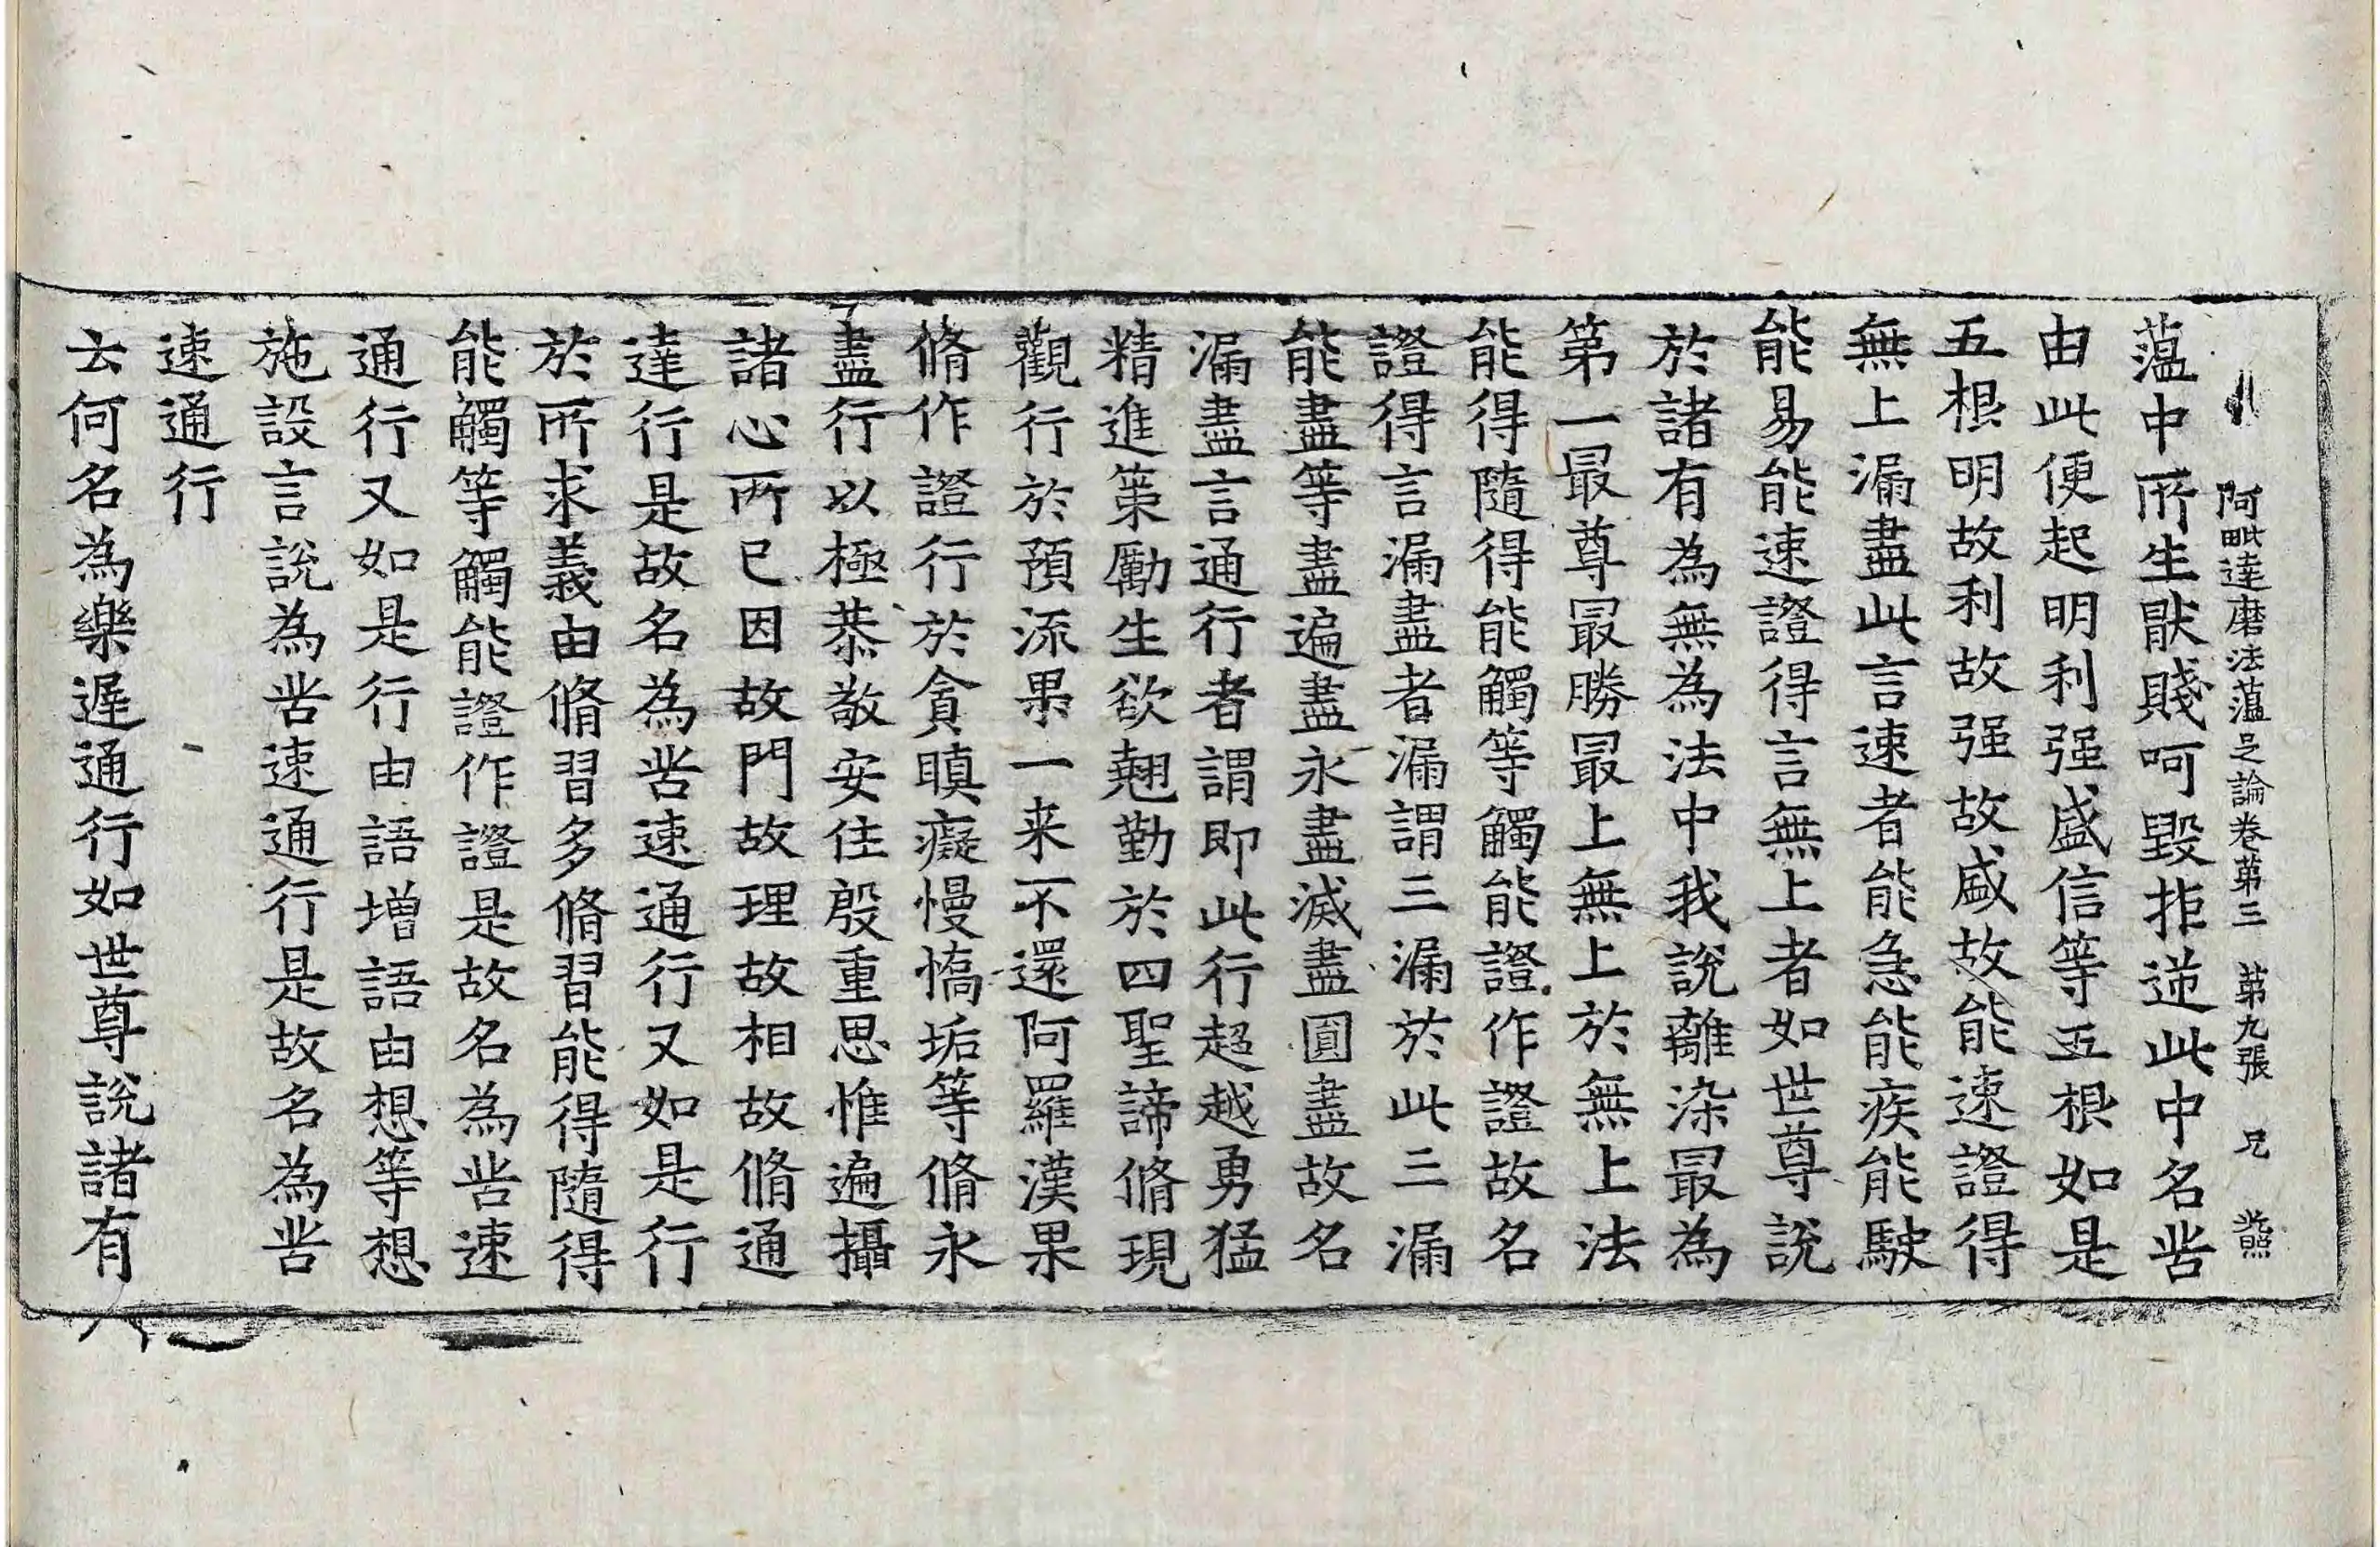 阿毗達磨法蘊足論卷第三 第九張 兄
蘊中所生猒賤呵毀拒逆此中名苦
由此便起明利强盛信等五根如是
五根明故利故强故盛故能速證得
無上漏盡此言速者能急能疾能駛
能易能速證得言無上者如世尊說
於諸有為無為法中我說離染最為
第一最尊最勝最上無上於無上法
能得隨得能觸等觸能證作證故名
證得言漏盡者漏謂三漏於此三漏
能盡等盡遍盡永盡滅盡圓盡故名
漏盡言通行者謂即此行超越勇猛
精進策勵生欲翹勤於四聖諦脩現
觀行於預流果一来不還阿羅漢果
脩作證行於貪瞋癡慢憍垢等脩永
盡行以極恭敬安住殷重思惟遍攝
諸心所已因故門故理故相故脩通
達行是故名為苦速通行又如是行
於所求義由脩習多脩習能得隨得
能觸等觸能證作證是故名為苦速
通行又如是行由語增語由想等想
施設言說為苦速通行是故名為苦
速通行
云何名為樂遲通行如世尊說諸有